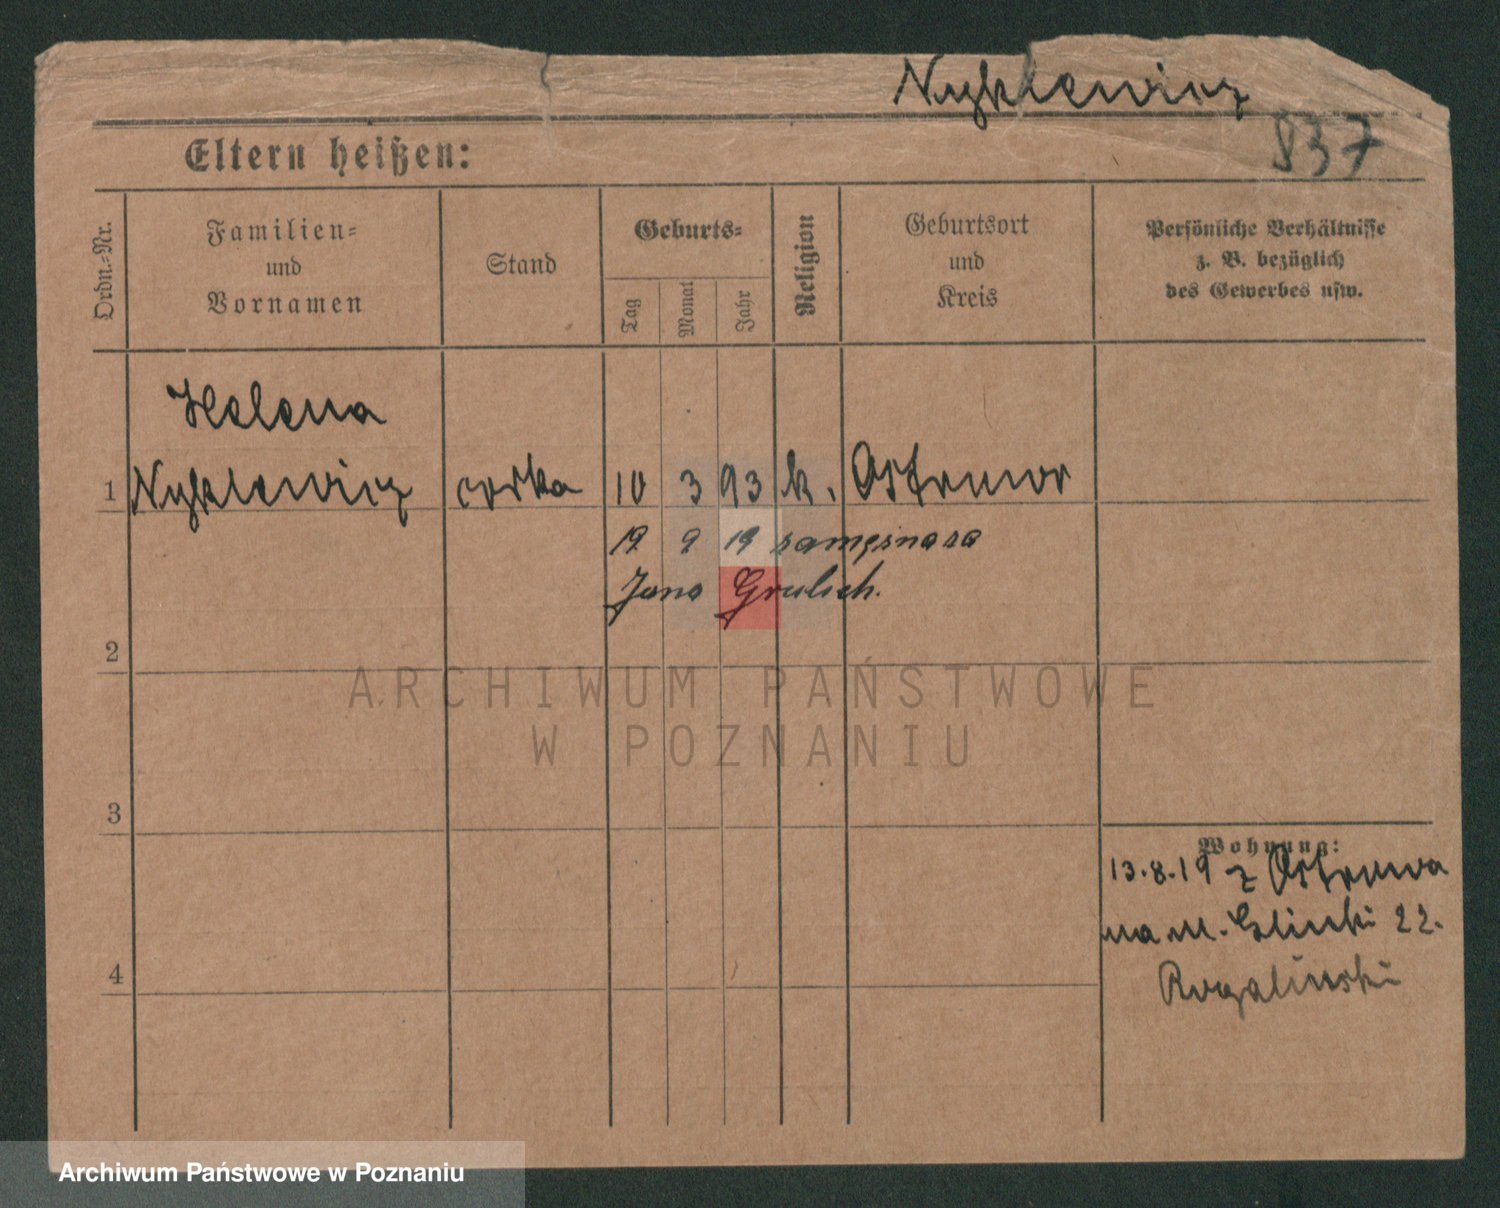 Nyklewicz
837
Eltern heißen:
Ordn.-Nr.
Familien-
und
Vornamen
Stand
Geburts-
Tag
Monat
Jahr
Religion
Geburtsort
und
Kreis
Persönliche Verhältnisse
z. B. bezüglich
des Gewerbes usw.
Helena
1 Nyklewicz córka 10 3 93 k. Ostrowo
19 9 19 zamężna za
Jana Grulich.
2
ARCHIWUM PAŃSTWOWE
W POZNANIU
3
Wohnung:
13.8.19 z Ostrowa
na M. Glinki 22.
4
Rogalinski
Archiwum Państwowe w Poznaniu